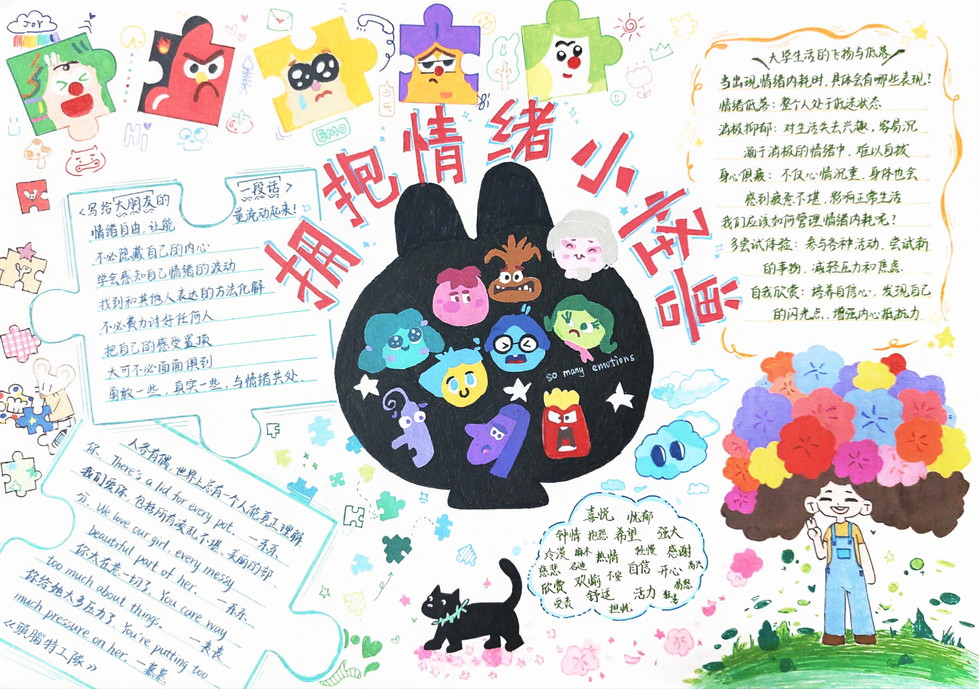 JOY
Hi
EMO
拥抱情绪小怪兽
<写给大朋友的一段话>
情绪自由,让能量流动起来!
不必隐藏自己的内心
学会感知自己情绪的波动
找到和其他人表达的方法化解
不必费力讨好任何人
把自己的感受置顶
大可不必面面俱到
勇敢一些,真实一些,与情绪共处.
人各有偶,世界上总有一个人能真正理解
你. There's a lid for every pot. —乐乐
我们爱你,包括所有凌乱不堪、美丽的部
分. We love our girl, every messy
beautiful part of her. —乐乐
你太在意一切了. You care way
too much about things. —丧丧
你给她太多压力了. You're putting too
much pressure on her. —焦焦
《头脑特工队》
so many emotions
喜悦 忧郁
钟情 抱怨 希望 强大
冷漠 麻木 热情 轻慢 感谢
慈悲 自信 开心
欣赏 欢愉 不安
舒适 活力
担忧
大学生活的飞扬与低落
当出现情绪内耗时,具体会有哪些表现?
情绪低落:整个人处于低迷状态
消极抑郁:对生活失去兴趣,容易沉
湎于消极的情绪中,难以自拔
身心俱疲:不仅心情沉重,身体也会
感到疲惫不堪,影响正常生活
我们应该如何管理情绪内耗呢?
多尝试体验:参与各种活动,尝试新
的事物,减轻压力和焦虑.
自我欣赏:培养自信心,发现自己
的闪光点,增强内心抵抗力